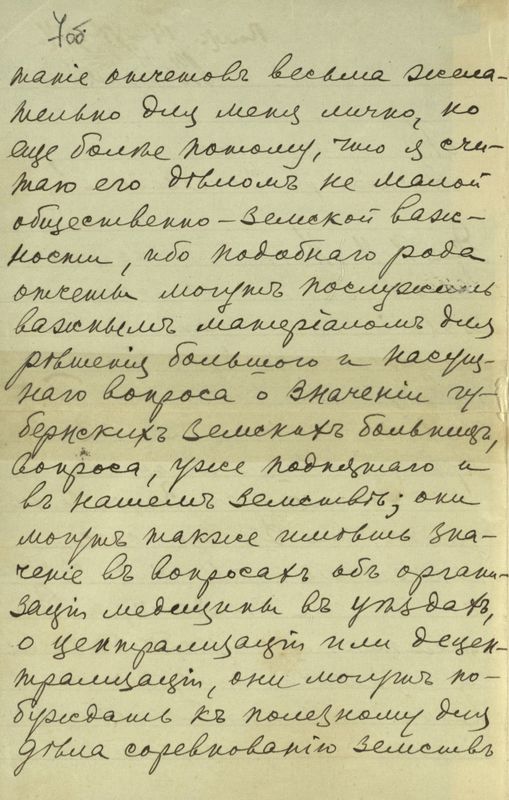 7об
таніе отчетовъ весьма жела-
тельно для меня лично, но
еще болѣе потому, что я счи-
таю его дѣломъ не малой
общественно-земской важ-
ности, ибо подобнаго рода
отчеты могутъ послужить
важнымъ матеріаломъ для
рѣшенія большого и насущ-
наго вопроса о значеніи гу-
бернскихъ земскихъ больницъ,
вопроса, уже поднятаго и
въ нашемъ земствѣ; они
могутъ также имѣть зна-
ченіе въ вопросахъ объ органи-
заціи медицины въ уѣздахъ,
о централизаціи или децен-
трализаціи, они могутъ по-
буждать къ полезному для
дѣла соревнованію земствъ